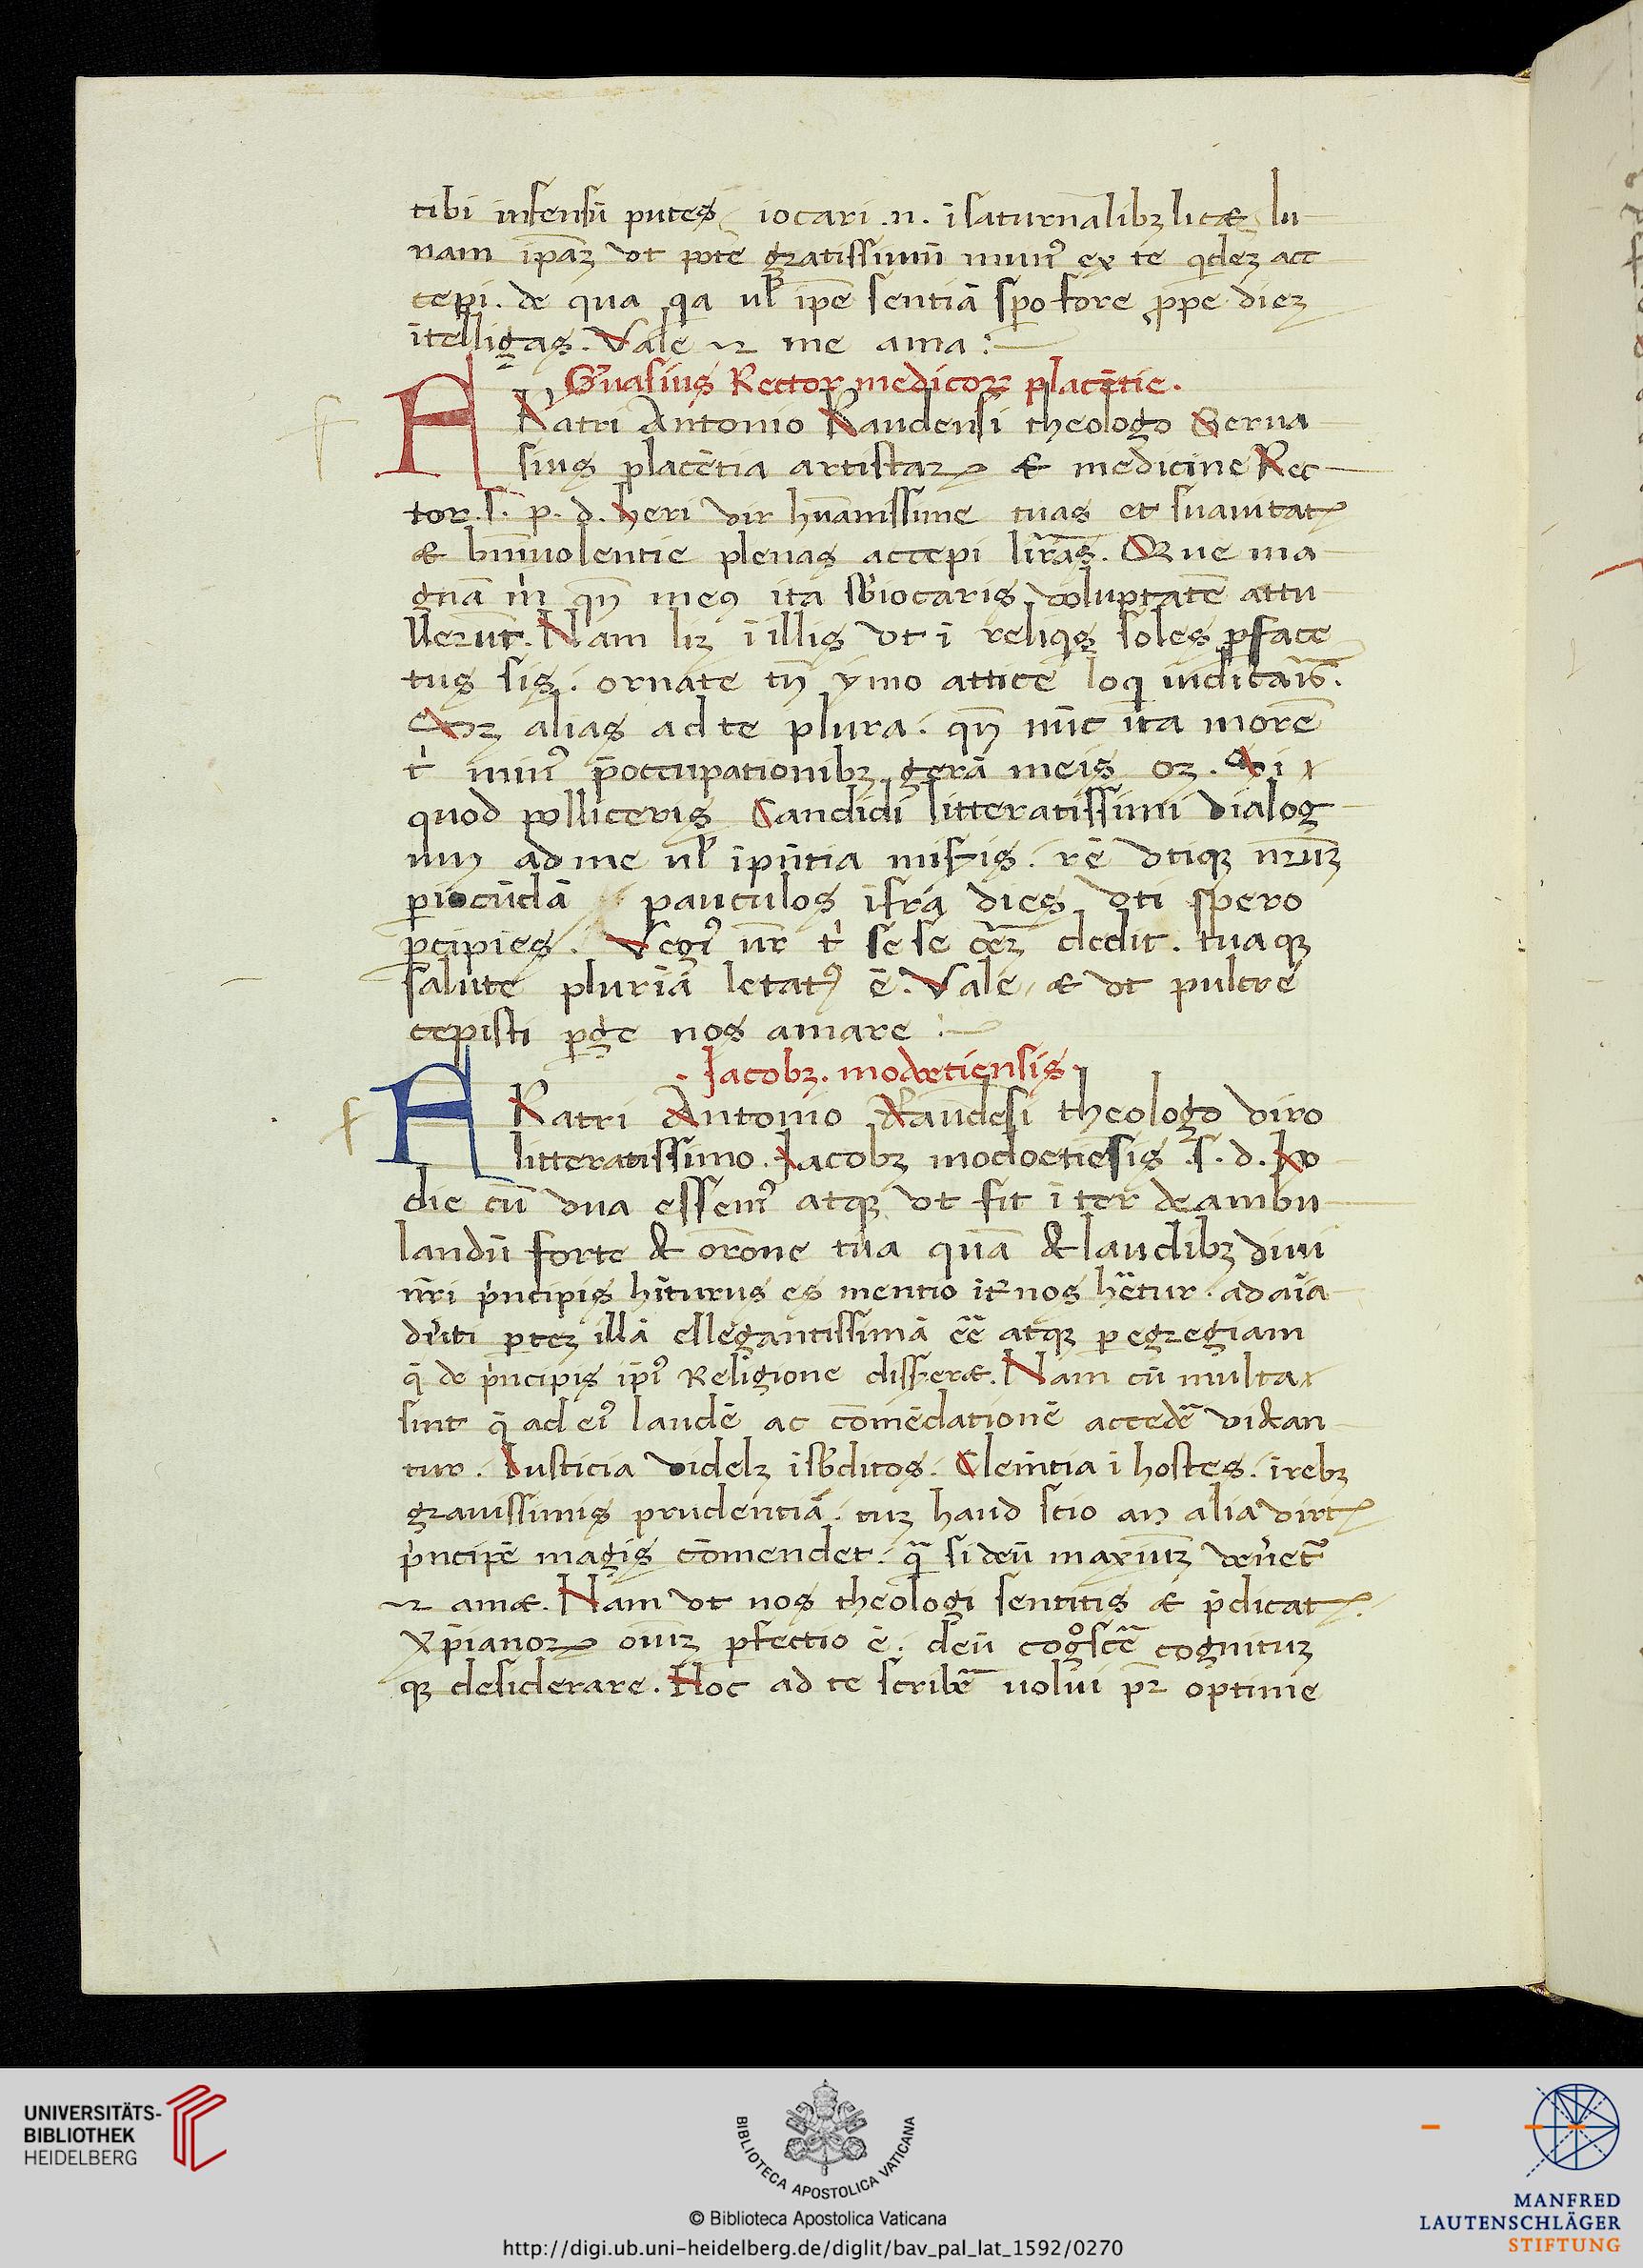 tibi infensū putes iocari .n. ī saturnalibꝫ licæ lu
nam ip̄aꝫ vt pote gratissimū mun⁹ ex te qdeꝫ acc
cepi. de qua qa ul' ip̄e sentiā sp̱o fore ꝓpe dieꝫ
ītelligas. Vale ⁊ me ama:
G'uasius Rector medicoꝝ placētie.
FRatri Antonio Raudensi theologo Gerua
sius placētia artistaꝝ æ medicine Rec
tor. s. p. d. heri vir hūanissime tuas et suauitatꝭ
æ bn̄iuolentie plenas accepi lr̄as. Que ma
gnā m̓ qn̄ meꝰ ita sb̓iocaris voluptatē attu
llerūt. Nam lꝫ ī illis vt ī reliqs soles ꝑface
tus sis. ornate tn̄ ymo attice loqi iudicar̄is.
Sꝫ alias ad te plura. qn̄ nūc ita morē
t̓ nimi⁹ p̄occupationibꝫ gerā meis oꝫ. Qi
quod polliceris Candidi litteratissimi dialog
um ad me ul' īpn̄tia mistis. rē vtiqꝫ nr̄aꝫ
ꝑiocūdā pauculos īfra dies vti spero
ꝑcipies. Vegi⁹ nr̄ t̓ sese deꝫ dedit. tuaqꝫ
salute plurīā letat⁹ ē. Vale æ vt pulcre
cepisti ꝑge nos amare:
.Jacobꝫ. modoetiensis.
FRatri Antonio Raudēsi theologo viro
litteratissimo. Jacobꝫ modoetiēsis .s. d. Ho
die cū vna essem⁹ atqꝫ vt fit īter deambu
landū forte & or̄one tua quā & laudibꝫ diui
nr̄i p̓ncipis h̄iturus es mentio īt̓ nos hētur. ad aīa
dv̓ti ꝑteꝫ illā ellegantissimā eē atqꝫ ꝑegregiam
q̄ de p̓ncipis ip̄i⁹ Religione disseræ. Nam cū multa
sint q̄ ad ei⁹ laudē ac cōmēdationē accedē videan
tur. Iusticia videlꝫ ī sb̓ditos. Clemētia ī hostes. ī rebꝫ
grauissimis prudentiā. tuꝫ haud scio an alia virtꝭ
p̓ncipē magis cōmendet. qā si deū maximꝫ venet̄
⁊ amæ. Nam vt uos theologi sentitis æ p̄dicatꝭ.
Xp̄ianoꝝ oīuꝫ ꝑfectio ē. deū cogºscē cognituꝫ
qꝫ desiderare. Hoc ad te scribē uolui pr̄ optime
UNIVERSITÄTS-
BIBLIOTHEK
HEIDELBERG
BIBLIOTECA APOSTOLICA VATICANA
© Biblioteca Apostolica Vaticana
http://digi.ub.uni-heidelberg.de/diglit/bav_pal_lat_1592/0270
MANFRED
LAUTENSCHLÄGER
STIFTUNG